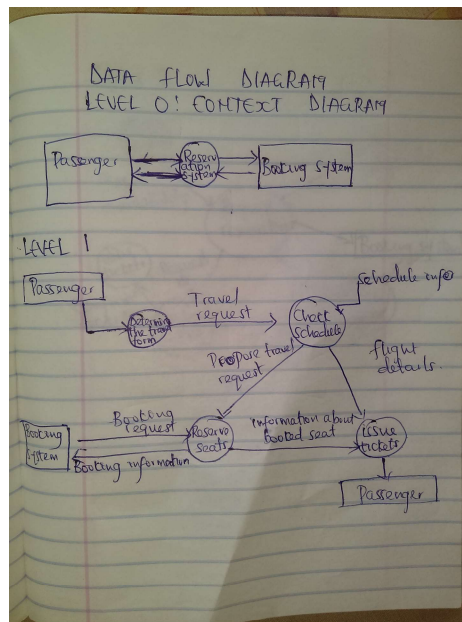 DATA FLOW DIAGRAM
LEVEL 0: CONTEXT DIAGRAM
Passenger
Reserv
ation
System
Booking System
LEVEL 1
Passenger
Determine
the travel
form
Travel
request
Check
schedule
schedule info
Propose travel
request
flight
details.
Booking
System
Booking
request
Booking information
Reserve
seats
information about
booked seat
issue
tickets
Passenger